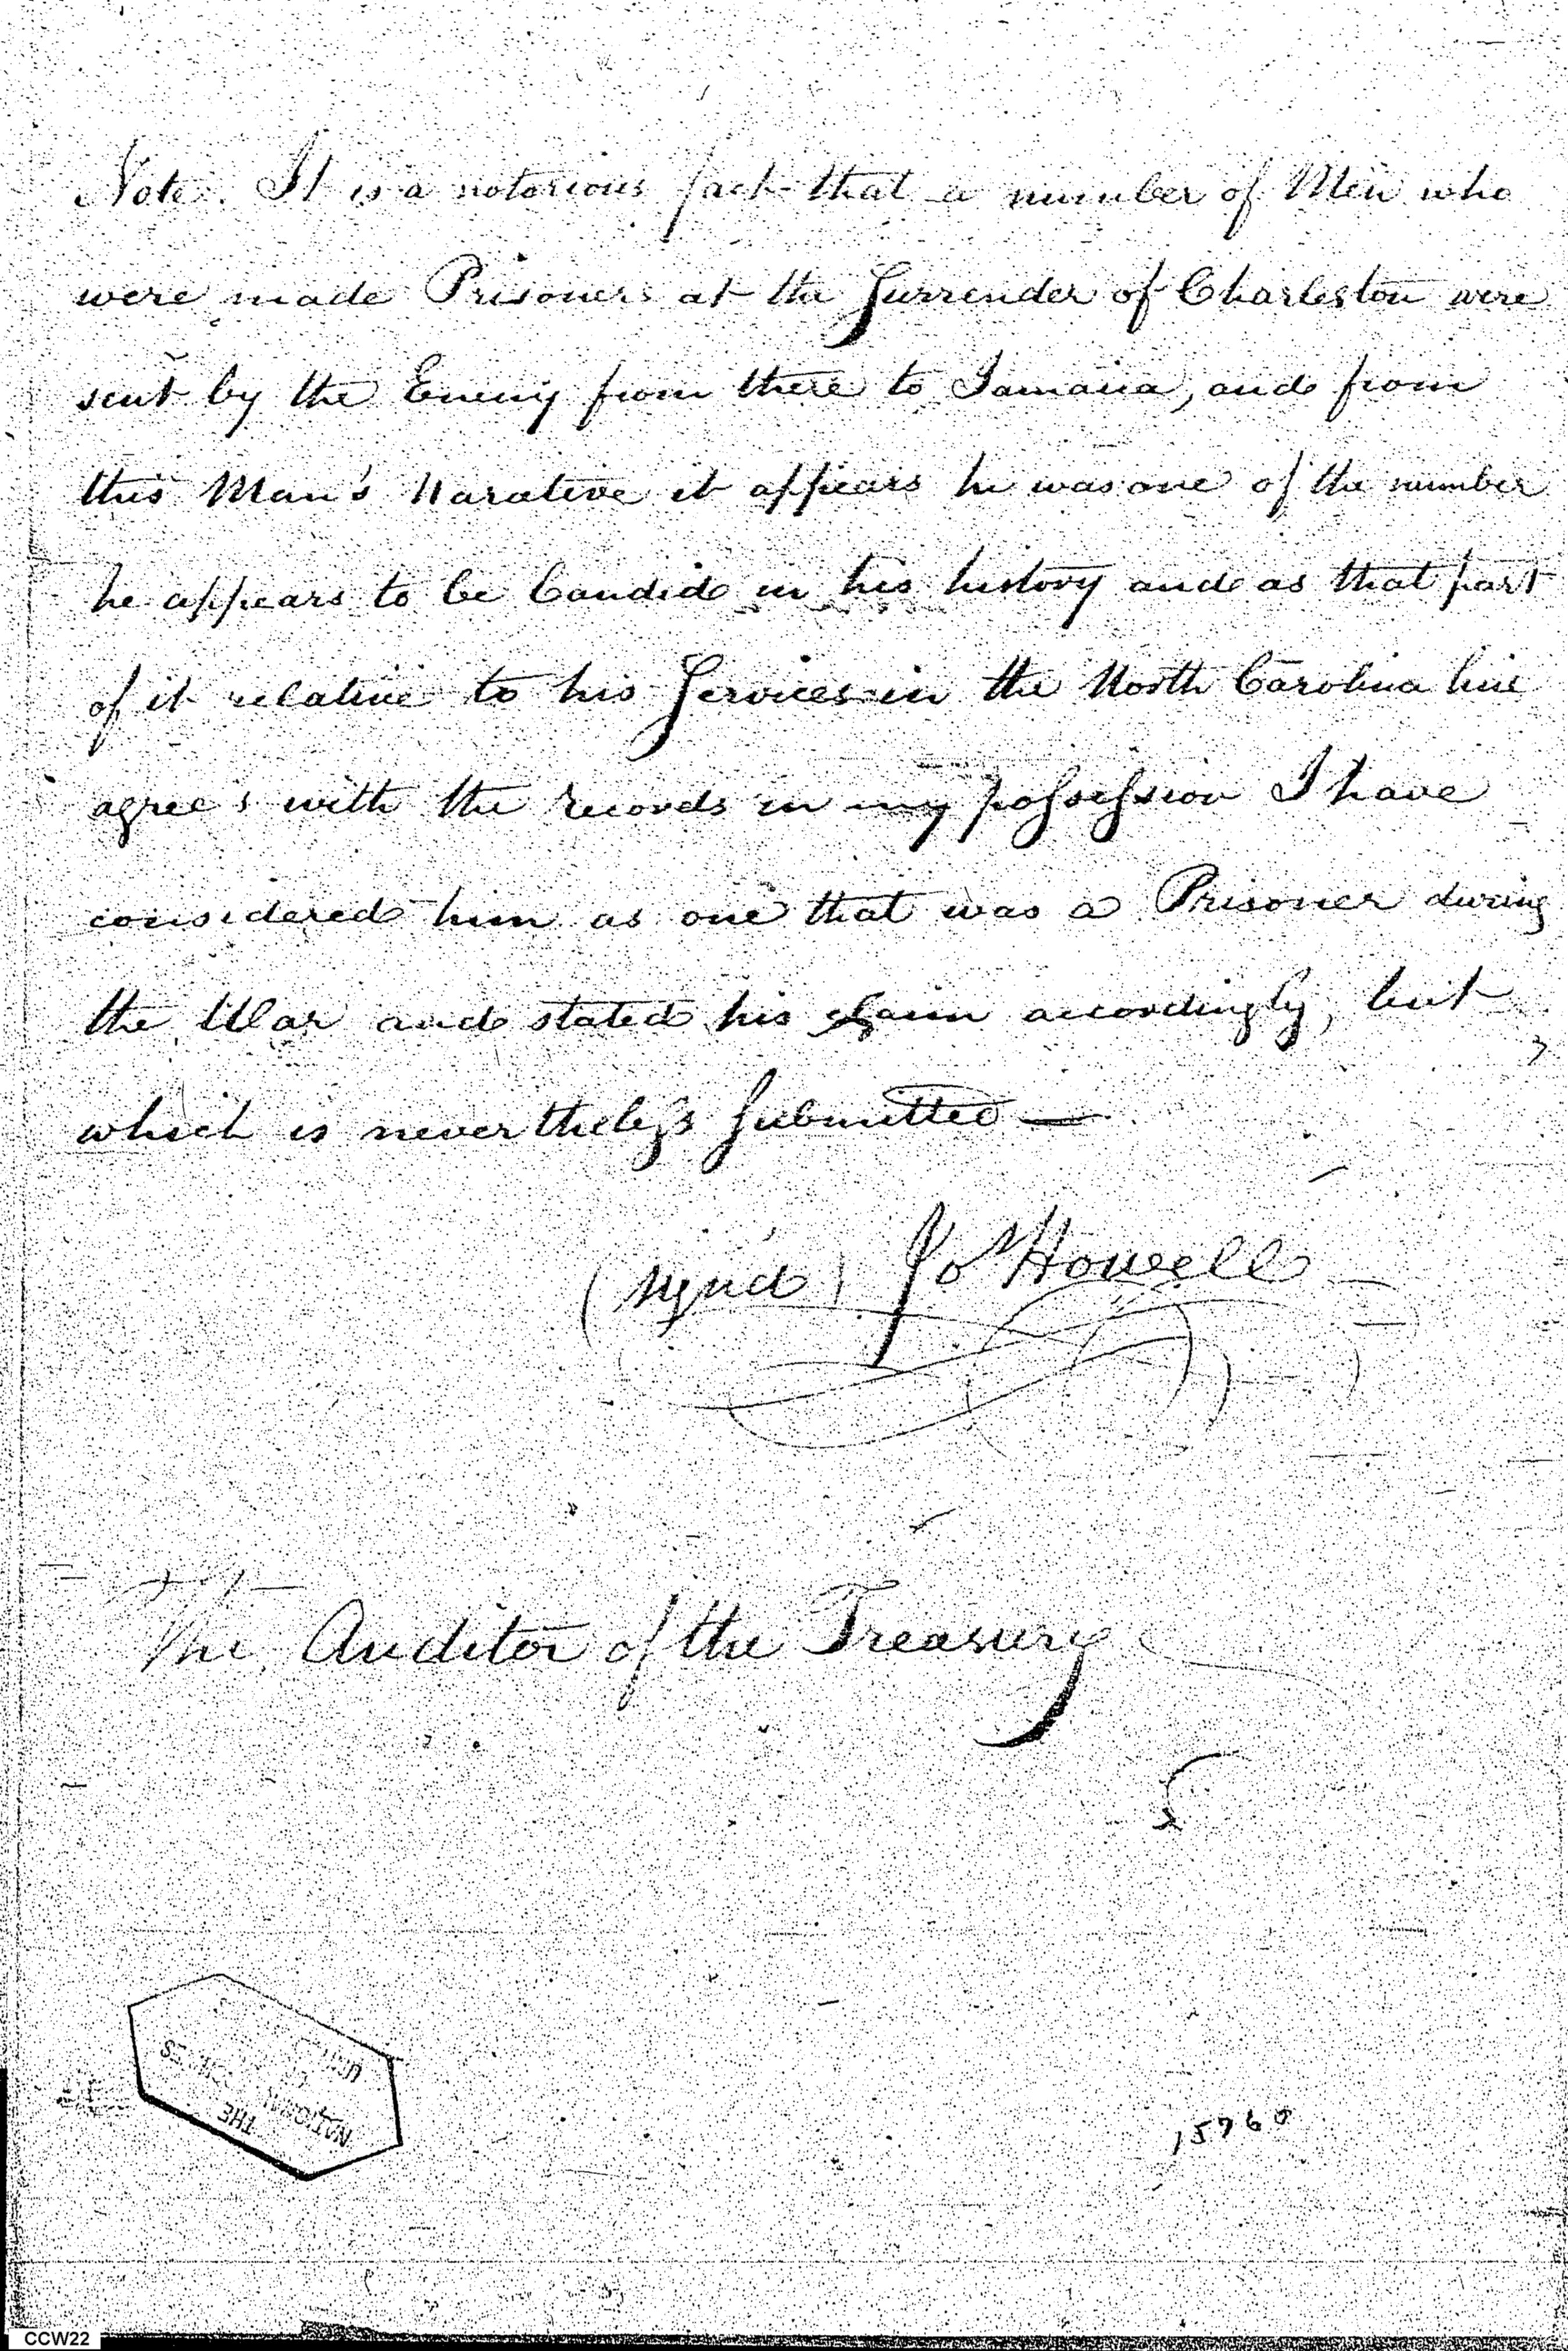 Note. It is a notorious fact that a number of Men who
were made Prisoners at the Surrender of Charleston were
sent by the Enemy from there to Jamaica, and from
this Man's Narative it appears he was one of the number
he appears to be Candid in his history and as that part
of it relative to his Services in the North Carolina line
agrees with the records in my possession I have
considered him as one that was a Prisoner during
the War and stated his claim accordingly, but
which is nevertheless Submitted —
(signd) Jo Howell
The Auditor of the Treasury
THE
NATIONAL
15760
CCW22